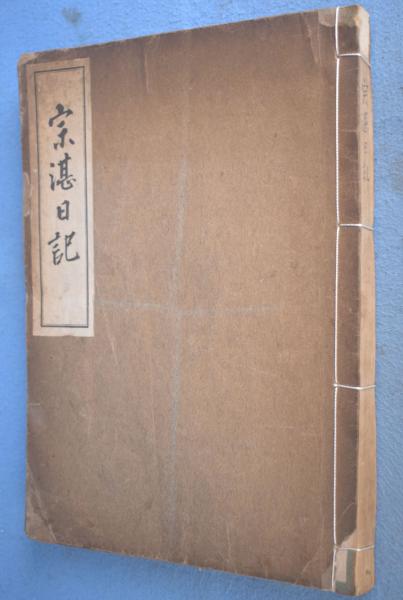 宗湛日記